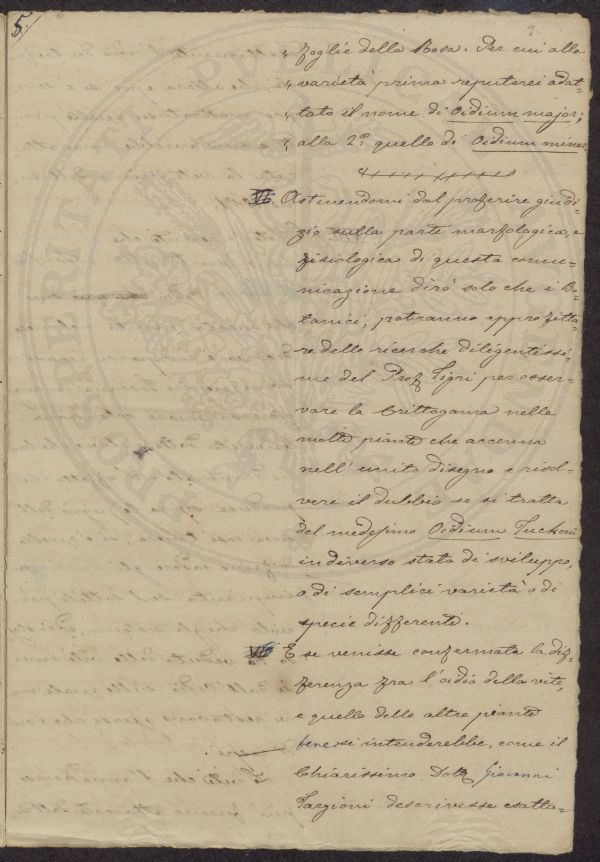 5.
7
" foglie della Rosa. Per cui alla
" varietà prima reputerei adat-
" tato il nome di Oidium major;
" alla 2ª quello di Oidium minor
VI Astenendomi dal proferire giudi-
zio sulla parte morfologica, e
fisiologica di questa comu-
nicazione dirò solo che i Bo-
tanici, potranno approfitta-
re delle ricerche diligentissi-
me del Prof Tigri per osser-
vare la Crittogama nelle
molte piante che accenna
nell' unito disegno e risol-
vere il dubbio se si tratta
del medesimo Oidium Tuckeri
in diverso stato di sviluppo,
o di semplici varietà o di
specie differenti.
VII E se venisse confermata la dif-
ferenza fra l'oidio della vite,
e quello delle altre piante
bene si intenderebbe, come il
Chiarissimo Dott. Giovanni
Targioni descrivesse esatta-